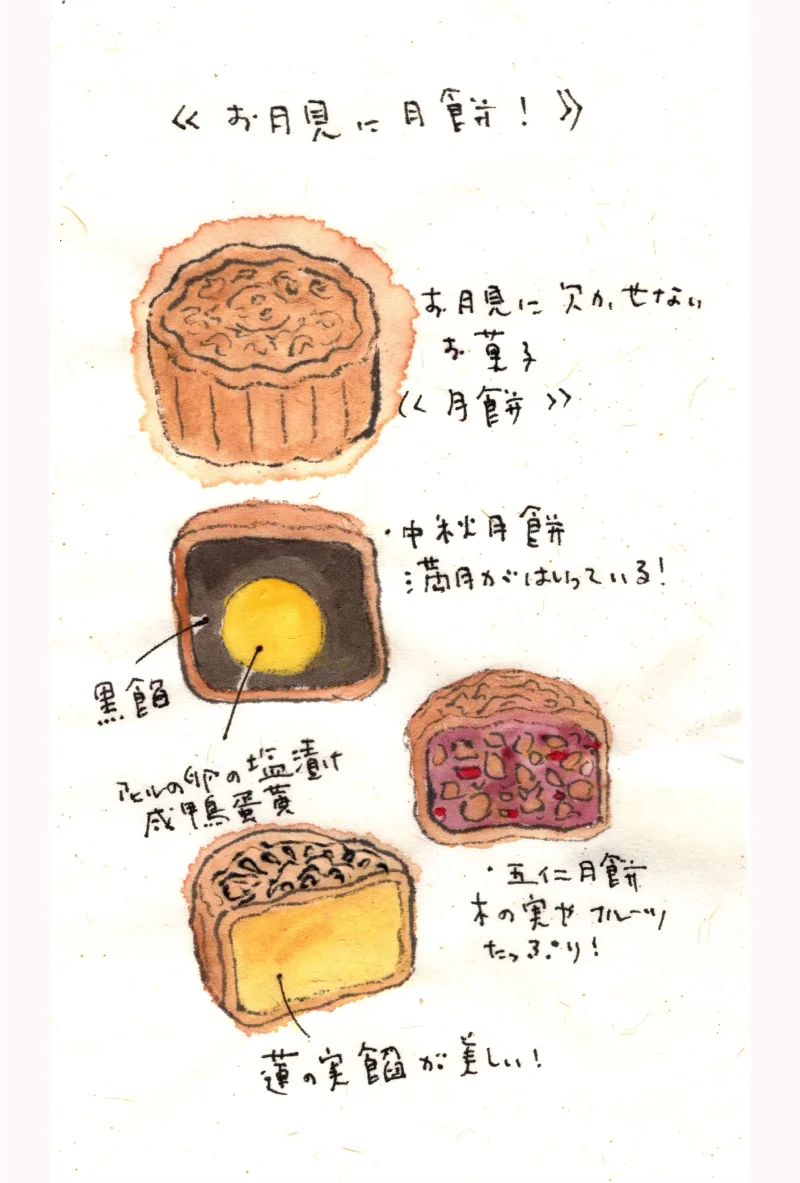 《お月見に月餅！》
お月見に欠かせない
お菓子
《月餅》
・中秋月餅
満月がはいっている！
黒餡
アヒルの卵の塩漬け
咸鴨蛋黄
・五仁月餅
木の実やフルーツ
たっぷり！
蓮の実餡が美しい！